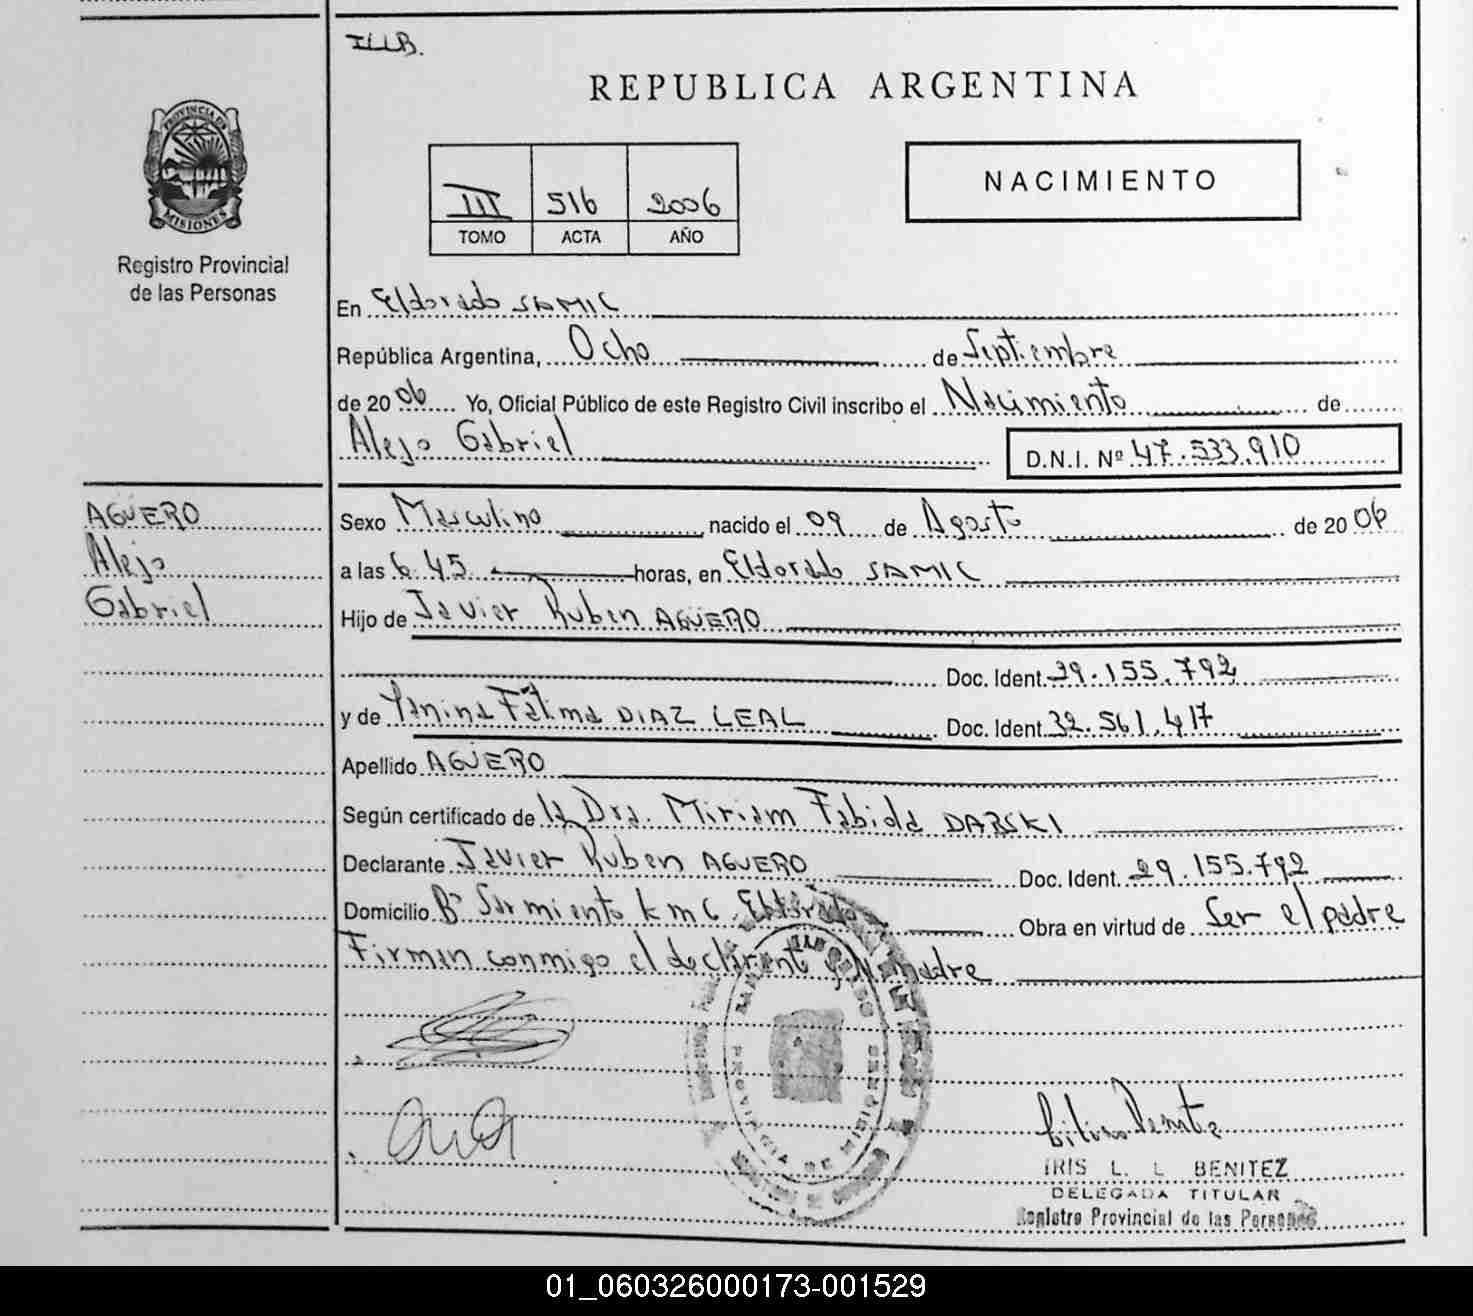 ILLB.
REPUBLICA ARGENTINA
PROVINCIA DE
MISIONES
Registro Provincial
de las Personas
III 516 2006
TOMO ACTA AÑO
NACIMIENTO
En Eldorado SAMIC
República Argentina, Ocho de Septiembre
de 20 06 Yo, Oficial Público de este Registro Civil inscribo el Nacimiento de
Alejo Gabriel D.N.I. Nº 47.533.910
AGÜERO
Alejo
Gabriel
Sexo Masculino nacido el 09 de Agosto de 20 06
a las 6:45 horas, en Eldorado SAMIC
Hijo de Javier Ruben AGÜERO
Doc. Ident. 29.155.792
y de Yanina Fátima DIAZ LEAL Doc. Ident. 32.561.417
Apellido AGÜERO
Según certificado de la Dra. Miriam Fabiola DARSKI
Declarante Javier Ruben AGÜERO Doc. Ident. 29.155.792
Domicilio Bº Sarmiento km 6. Eldorado Obra en virtud de Ser el padre
Firman conmigo el declarante y la madre
PROVINCIA DE MISIONES
IRIS L. L BENITEZ
DELEGADA TITULAR
Registro Provincial de las Personas
01_060326000173-001529